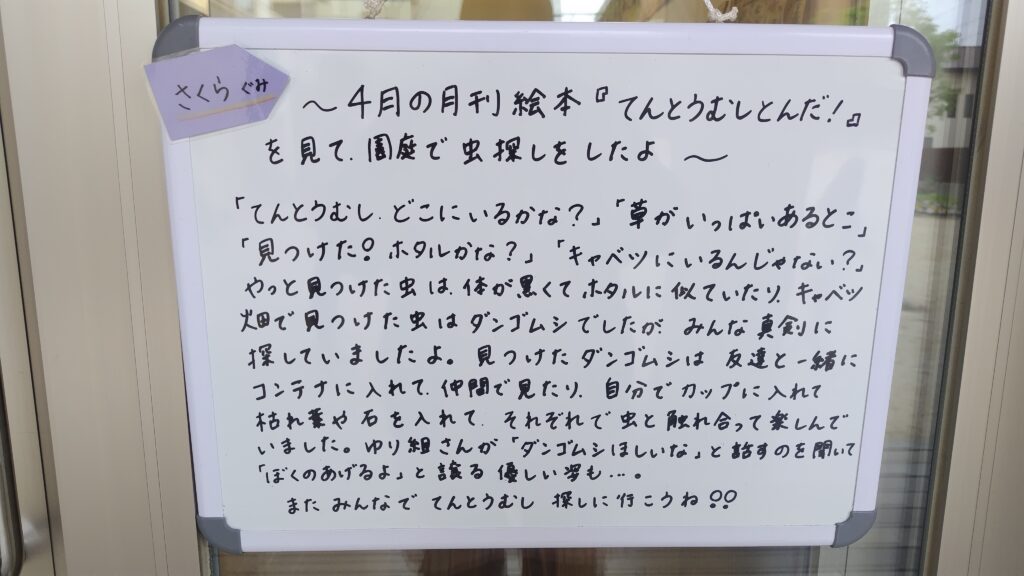 さくらぐみ
～4月の月刊絵本『てんとうむしとんだ！』
を見て、園庭で虫探しをしたよ～
「てんとうむし、どこにいるかな？」「草がいっぱいあるとこ」
「見つけた！ホタルかな？」「キャベツにいるんじゃない？」
やっと見つけた虫は、体が黒くてホタルに似ていたり、キャベツ
畑で見つけた虫はダンゴムシでしたが、みんな真剣に
探していましたよ。見つけたダンゴムシは友達と一緒に
コンテナに入れて、仲間で見たり、自分でカップに入れて
枯れ葉や石を入れて、それぞれで虫と触れ合って楽しんで
いました。ゆり組さんが「ダンゴムシほしいな」と話すのを聞いて
「ぼくのあげるよ」と譲る優しい姿も…。
またみんなでてんとうむし探しに行こうね！！